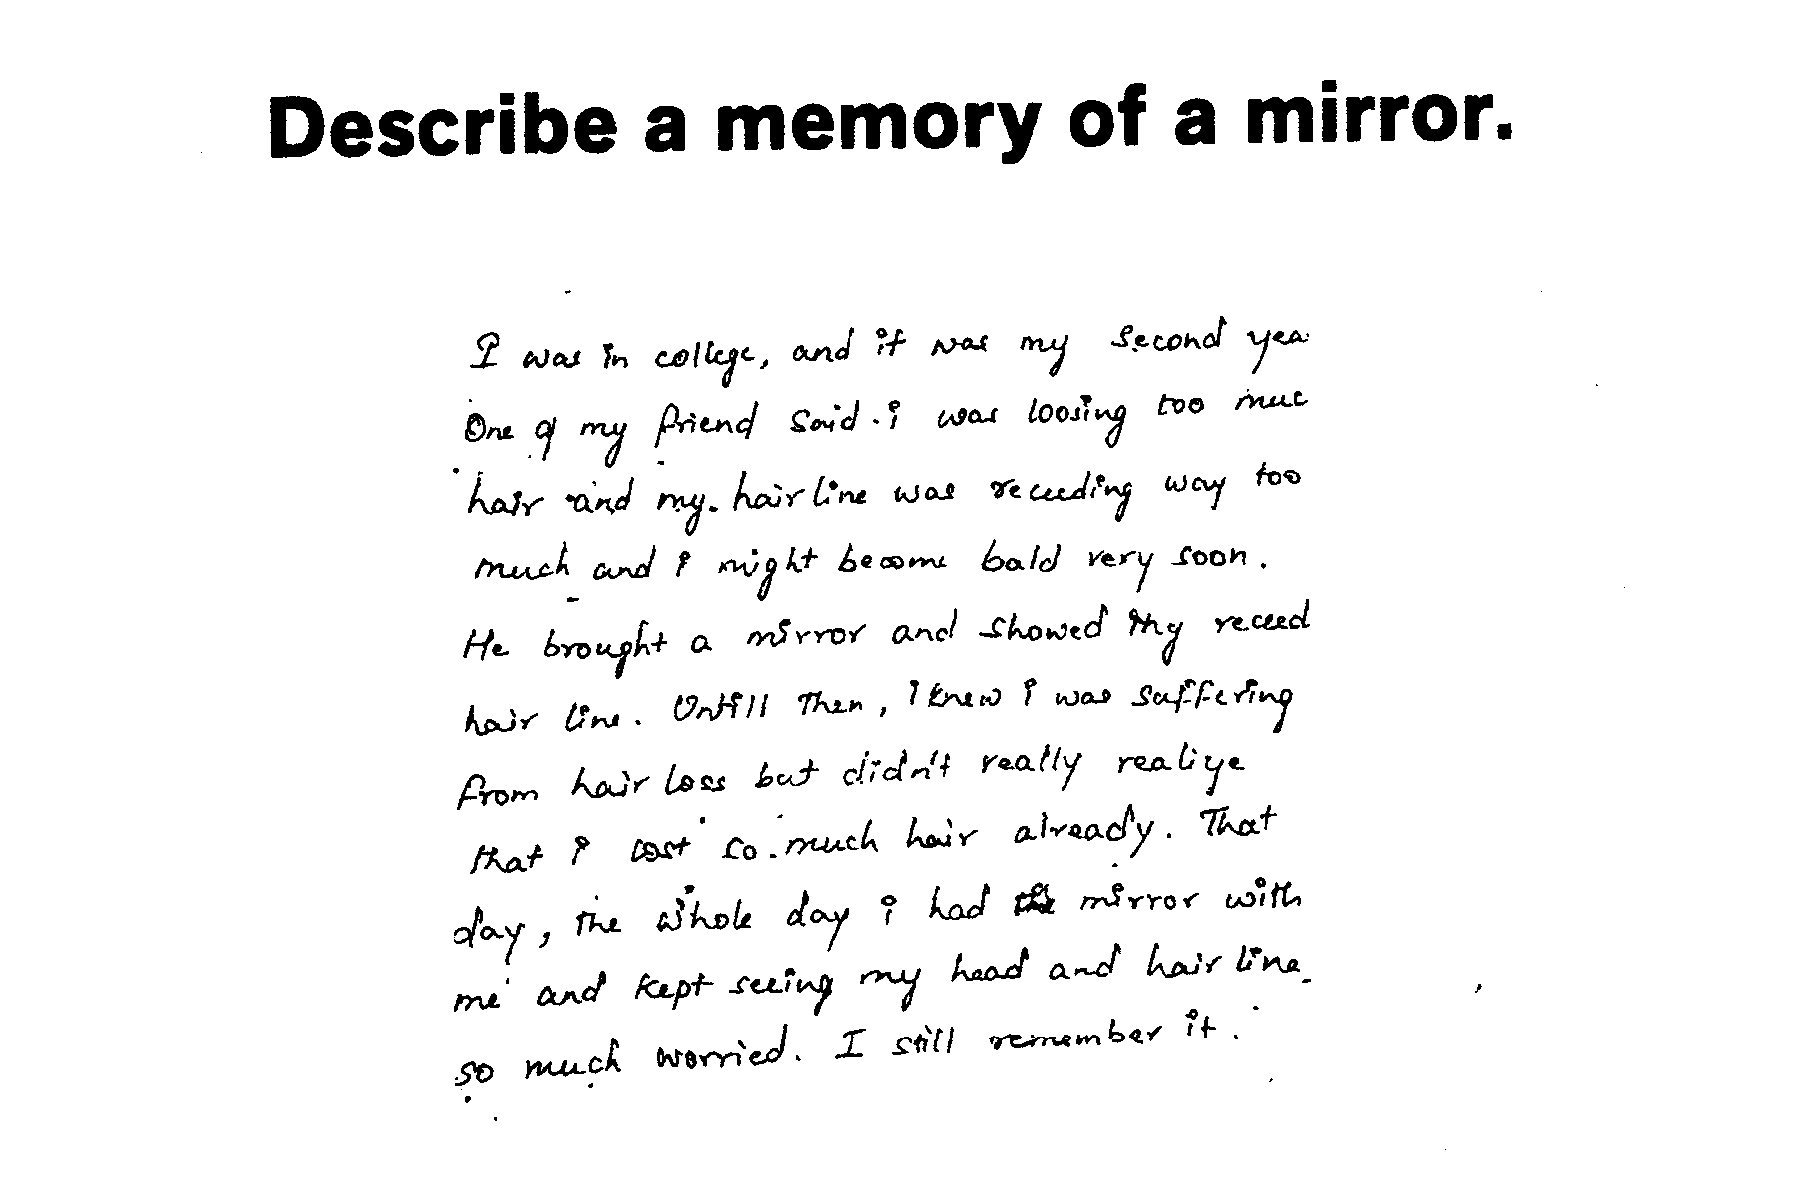 Describe a memory of a mirror.
I was in college, and it was my second yea
One of my friend said i was loosing too muc
hair and my hair line was receeding way too
much and i might become bald very soon.
He brought a mirror and showed my receed
hair line. Untill then, I knew i was suffering
from hair loss but didn't really realize
that i lost so much hair already. That
day, the whole day i had the mirror with
me and kept seeing my head and hair line
so much worried. I still remember it.